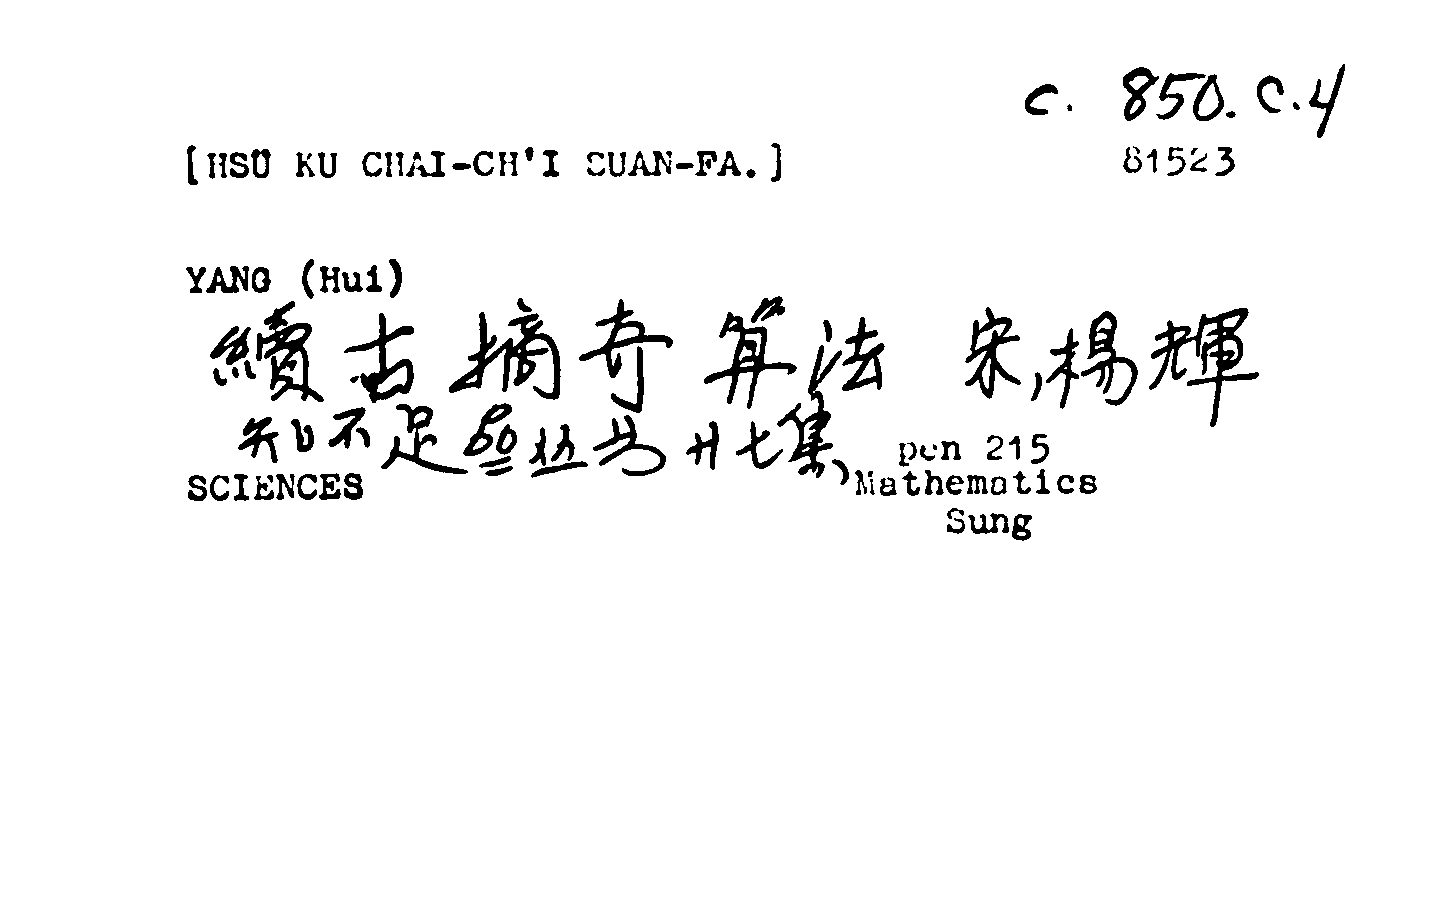 c. 850.c.4
[HSÜ KU CHAI-CH'I SUAN-FA.] 81523
YANG (Hui)
續古摘奇算法 宋,楊輝
知不足齋丛书廿七集, pen 215
SCIENCES Mathematics
Sung